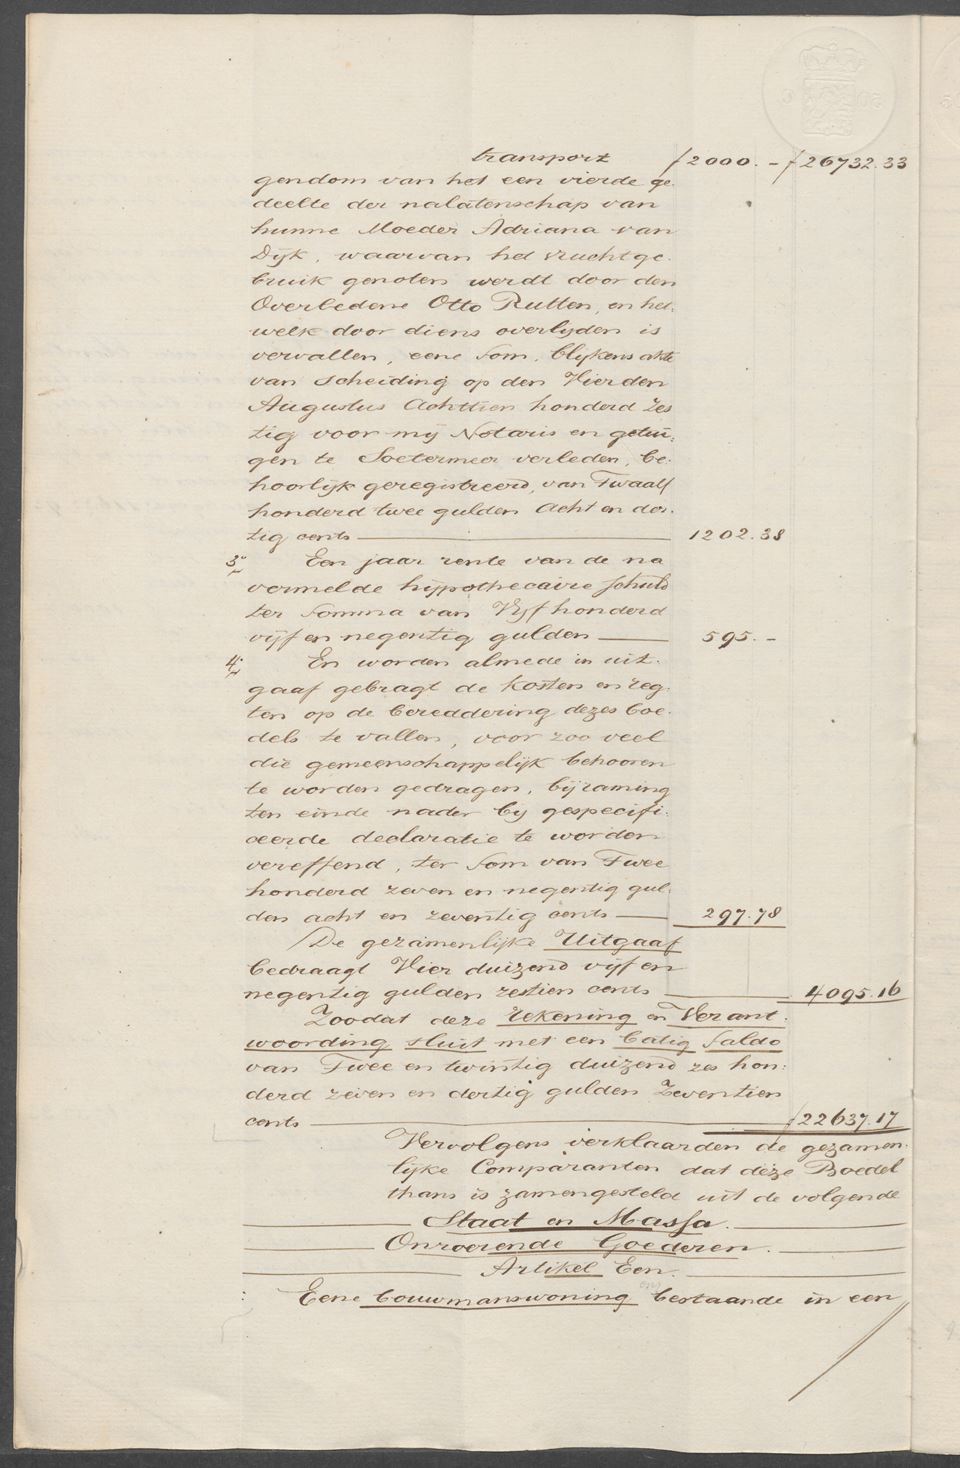 transport f 2000. - f 26732.33
gendom van het een vierde ge-
deelte der nalatenschap van
hunne Moeder Adriana van
Dijk, waarvan het vruchtge-
bruik genoten werdt door den
Overledene Otto Rutten, en het-
welk door diens overlijden is
vervallen, eene som, blijkens akte
van scheiding op den Vierden
Augustus Achttien honderd zes
tig voor mij Notaris en getui-
gen te Soetermeer verleden, be-
hoorlijk geregistreerd, van Twaalf
honderd twee gulden Acht en der-
tig cents 1202.38
3o Een jaar rente van de na
vermelde hypothecaire schuld
ter Somma van Vijf honderd
vijf en negentig gulden 595.-
4o En worden almede in uit-
gaaf gebragt de kosten en reg-
ten op de bereddering dezes boe-
dels te vallen, voor zoo veel
die gemeenschappelijk behooren
te worden gedragen, bij raming
ten einde nader bij gespecifi-
ceerde declaratie te worden
vereffend, ter Som van Twee
honderd zeven en negentig gul-
den acht en zeventig cents 297.78
De gezamenlijke Uitgaaf
bedraagt Vier duizend vijf en
negentig gulden zestien cents 4095.16
Zoodat deze rekening en Verant-
woording sluit met een batig Saldo
van Twee en twintig duizend zes hon-
derd zeven en dertig gulden Zeventien
cents f 22637.17
Vervolgens verklaarden de gezamen-
lijke Comparanten dat deze Boedel
thans is zamengesteld uit de volgende
Staat en Massa.
Onroerende Goederen.
Artikel Een.
Eene bouwmanswoning bestaande in een